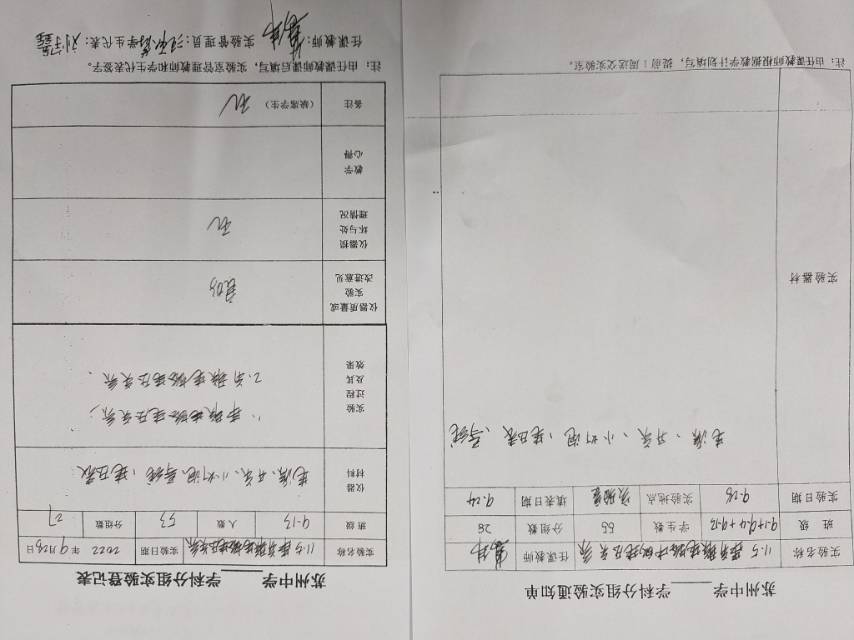 苏州中学______学科分组实验通知单
实验名称 11.5 串并联电路中的电压关系 任课教师
班级 9.1+9.4+9.13 学生数 55 分组数 28
实验日期 9.28 实验地点 实验室 填表日期 9.24
实验器材
电源、开关、小灯泡、电压表、导线
注：由任课教师根据教学计划填写，提前1周送交实验室。
苏州中学______学科分组实验登记表
实验名称 11.5 串并联电路电压关系 实验日期 2022年9月28日
班级 9.13 人数 53 分组数 27
仪器材料 电源、开关、小灯泡、导线、电压表
实验过程及其效果
1. 串联电路电压关系
2. 并联电路电压关系
仪器质量或实验改进意见 良好
仪器损坏与处理情况 无
教学心得
备注 （缺席学生） 无
注：由任课教师课后填写，实验室管理教师和学生代表签字。
任课教师： 实验管理员： 学生代表：